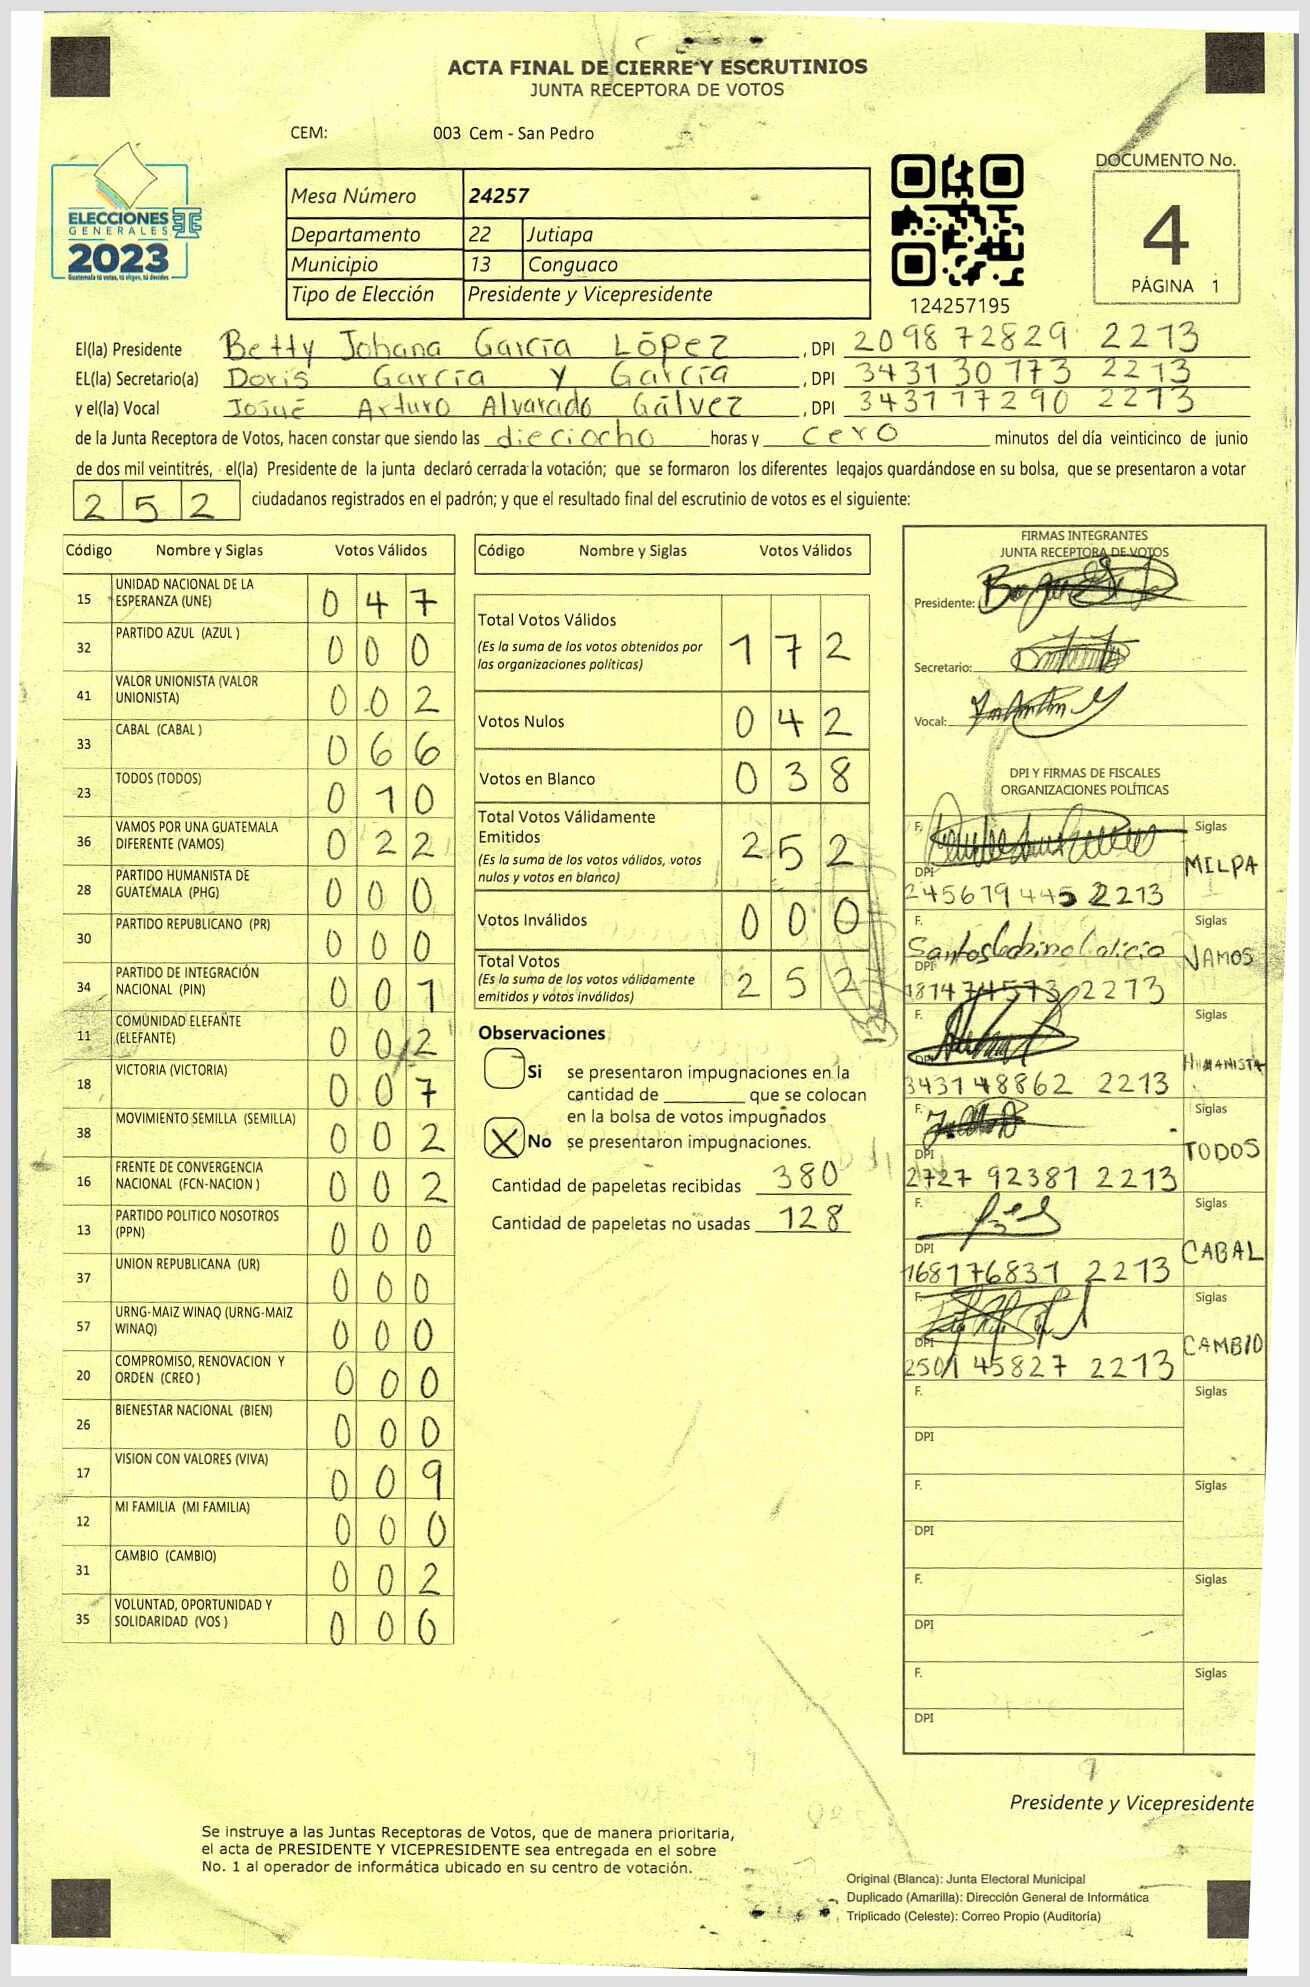 ACTA FINAL DE CIERRE Y ESCRUTINIOS
JUNTA RECEPTORA DE VOTOS
CEM: 003 Cem - San Pedro
DOCUMENTO No.
4
PÁGINA 1
ELECCIONES
GENERALES
2023
Guatemala tú votas, tú eliges, tú decides
Mesa Número 24257
Departamento 22 Jutiapa
Municipio 13 Conguaco
Tipo de Elección Presidente y Vicepresidente
124257195
El(la) Presidente Betty Johana García López, DPI 2098 72829 2213
EL(la) Secretario(a) Doris García y García, DPI 3431 30773 2213
y el(la) Vocal Josué Arturo Alvarado Gálvez, DPI 3431 17290 2213
de la Junta Receptora de Votos, hacen constar que siendo las dieciocho horas y cero minutos del día veinticinco de junio
de dos mil veintitrés, el(la) Presidente de la junta declaró cerrada la votación; que se formaron los diferentes legajos guardándose en su bolsa, que se presentaron a votar
252 ciudadanos registrados en el padrón; y que el resultado final del escrutinio de votos es el siguiente:
Código Nombre y Siglas Votos Válidos
15 UNIDAD NACIONAL DE LA ESPERANZA (UNE) 047
32 PARTIDO AZUL (AZUL ) 000
41 VALOR UNIONISTA (VALOR UNIONISTA) 002
33 CABAL (CABAL ) 066
23 TODOS (TODOS) 010
36 VAMOS POR UNA GUATEMALA DIFERENTE (VAMOS) 022
28 PARTIDO HUMANISTA DE GUATEMALA (PHG) 000
30 PARTIDO REPUBLICANO (PR) 000
34 PARTIDO DE INTEGRACIÓN NACIONAL (PIN) 001
11 COMUNIDAD ELEFANTE (ELEFANTE) 002
18 VICTORIA (VICTORIA) 007
38 MOVIMIENTO SEMILLA (SEMILLA) 002
16 FRENTE DE CONVERGENCIA NACIONAL (FCN-NACION ) 002
13 PARTIDO POLITICO NOSOTROS (PPN) 000
37 UNION REPUBLICANA (UR) 000
57 URNG-MAIZ WINAQ (URNG-MAIZ WINAQ) 000
20 COMPROMISO, RENOVACION Y ORDEN (CREO ) 000
26 BIENESTAR NACIONAL (BIEN) 000
17 VISION CON VALORES (VIVA) 009
12 MI FAMILIA (MI FAMILIA) 000
31 CAMBIO (CAMBIO) 002
35 VOLUNTAD, OPORTUNIDAD Y SOLIDARIDAD (VOS ) 000
Código Nombre y Siglas Votos Válidos
Total Votos Válidos 172
(Es la suma de los votos obtenidos por
las organizaciones políticas)
Votos Nulos 042
Votos en Blanco 038
Total Votos Válidamente
Emitidos 252
(Es la suma de los votos válidos, votos
nulos y votos en blanco)
Votos Inválidos 000
Total Votos 252
(Es la suma de los votos válidamente
emitidos y votos inválidos)
Observaciones
Si se presentaron impugnaciones en la
cantidad de ________ que se colocan
en la bolsa de votos impugnados
X No se presentaron impugnaciones.
Cantidad de papeletas recibidas 380
Cantidad de papeletas no usadas 128
FIRMAS INTEGRANTES
JUNTA RECEPTORA DE VOTOS
Presidente:
Secretario:
Vocal:
DPI Y FIRMAS DE FISCALES
ORGANIZACIONES POLÍTICAS
F. Siglas
MILPA
DPI
245679445 2213
F. Siglas
Santos Calicio
VAMOS
DPI
187474573 2213
F. Siglas
HUMANISTA
DPI
343148862 2213
F. Siglas
TODOS
DPI
2727 92381 2213
F. Siglas
CABAL
DPI
168176831 2213
F. Siglas
CAMBIO
DPI
2501 45827 2213
F. Siglas
DPI
F. Siglas
DPI
F. Siglas
DPI
F. Siglas
DPI
Presidente y Vicepresidente
Se instruye a las Juntas Receptoras de Votos, que de manera prioritaria,
el acta de PRESIDENTE Y VICEPRESIDENTE sea entregada en el sobre
No. 1 al operador de informática ubicado en su centro de votación.
Original (Blanca): Junta Electoral Municipal
Duplicado (Amarilla): Dirección General de Informática
Triplicado (Celeste): Correo Propio (Auditoría)